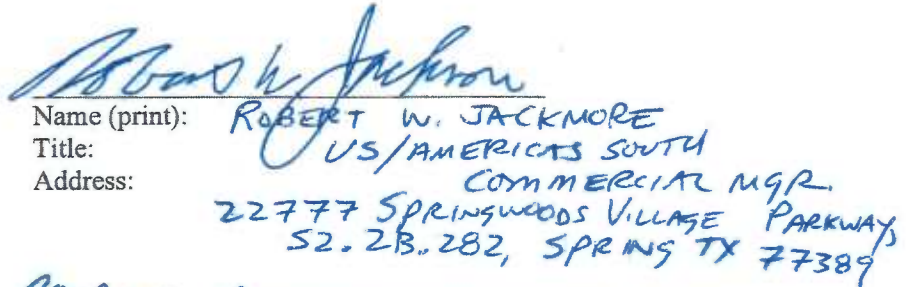 Robert W Jackmore
Name (print): ROBERT W. JACKMORE
Title: US/AMERICAS SOUTH
COMMERCIAL MGR.
Address:
22777 SPRINGWOODS VILLAGE PARKWAY,
S2.2B.282, SPRING TX 77389